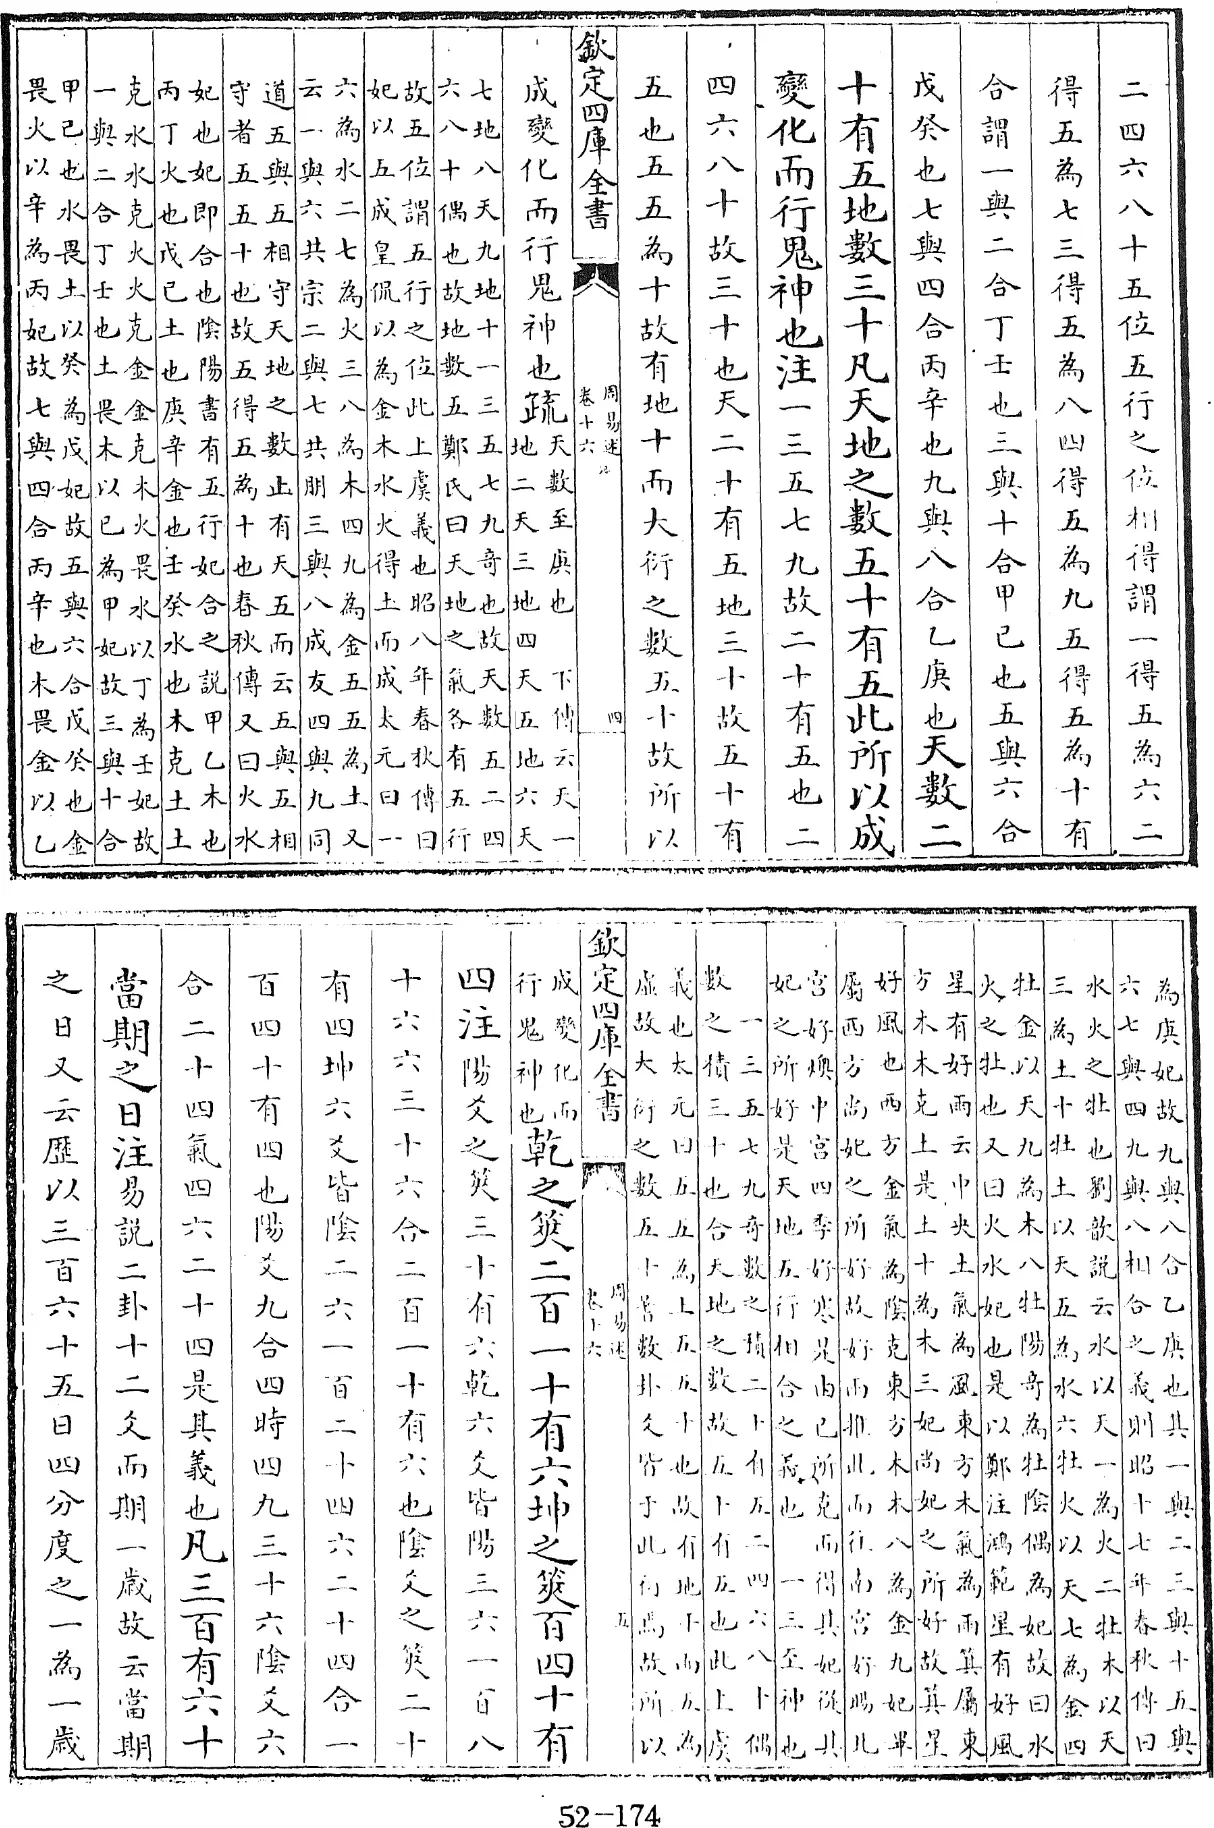 二四六八十五位五行之位相得謂一得五為六二
得五為七三得五為八四得五為九五得五為十有
合謂一與二合丁壬也三與十合甲己也五與六合
戊癸也七與四合丙辛也九與八合乙庚也天數二
十有五地數三十凡天地之數五十有五此所以成
變化而行鬼神也注一三五七九故二十有五也二
四六八十故三十也天二十有五地三十故五十有
五也五五為十故有地十而大衍之數五十故所以
欽定四庫全書
周易述
卷十六
四
成變化而行鬼神也疏天數至庚也 下傳云天一
地二天三地四天五地六天
七地八天九地十一三五七九奇也故天數五二四
六八十偶也故地數五鄭氏曰天地之氣各有五行
故五位謂五行之位此上虞義也昭八年春秋傳曰
妃以五成皇侃以為金木水火得土而成太元曰一
六為水二七為火三八為木四九為金五五為土又
云一與六共宗二與七共朋三與八成友四與九同
道五與五相守天地之數止有天五而云五與五相
守者五五十也故五得五為十也春秋傳又曰火水
妃也妃即合也陰陽書有五行妃合之說甲乙木也
丙丁火也戊己土也庚辛金也壬癸水也木克土土
克水水克火火克金金克木火畏水以丁為壬妃故
一與二合丁壬也土畏木以己為甲妃故三與十合
甲己也水畏土以癸為戊妃故五與六合戊癸也金
畏火以辛為丙妃故七與四合丙辛也木畏金以乙
為庚妃故九與八合乙庚也其一與二三與十五與
六七與四九與八相合之義則昭十七年春秋傳曰
水火之牡也劉歆說云水以天一為火二牡木以天
三為土十牡土以天五為水六牡火以天七為金四
牡金以天九為木八牡陽奇為牡陰偶為妃故曰水
火之牡也又曰火水妃也是以鄭注鴻範星有好風
星有好雨云中央土氣為風東方木氣為雨箕屬東
方木木克土是土十為木三妃尚妃之所好故箕星
好風也西方金氣為陰克東方木木八為金九妃畢
屬西方尚妃之所好故好雨推此而往南宮好暘北
宮好燠中宮四季好寒是由己所克而得其妃從其
妃之所好是天地五行相合之義也 一三至神也
一三五七九奇數之積二十有五二四六八十偶
數之積三十也合天地之數故五十有五也此上虞
義也太元曰五五為土五五十也故有地十而五為
虛故大衍之數五十蓍數卦爻皆于此衍焉故所以
欽定四庫全書
周易述
卷十六
五
成變化而
行鬼神也乾之筴二百一十有六坤之筴百四十有
四注陽爻之筴三十有六乾六爻皆陽三六一百八
十六六三十六合二百一十有六也陰爻之筴二十
有四坤六爻皆陰二六一百二十四六二十四合一
百四十有四也陽爻九合四時四九三十六陰爻六
合二十四氣四六二十四是其義也凡三百有六十
當期之日注易說二卦十二爻而期一歲故云當期
之日又云歷以三百六十五日四分度之一為一歲
52-174